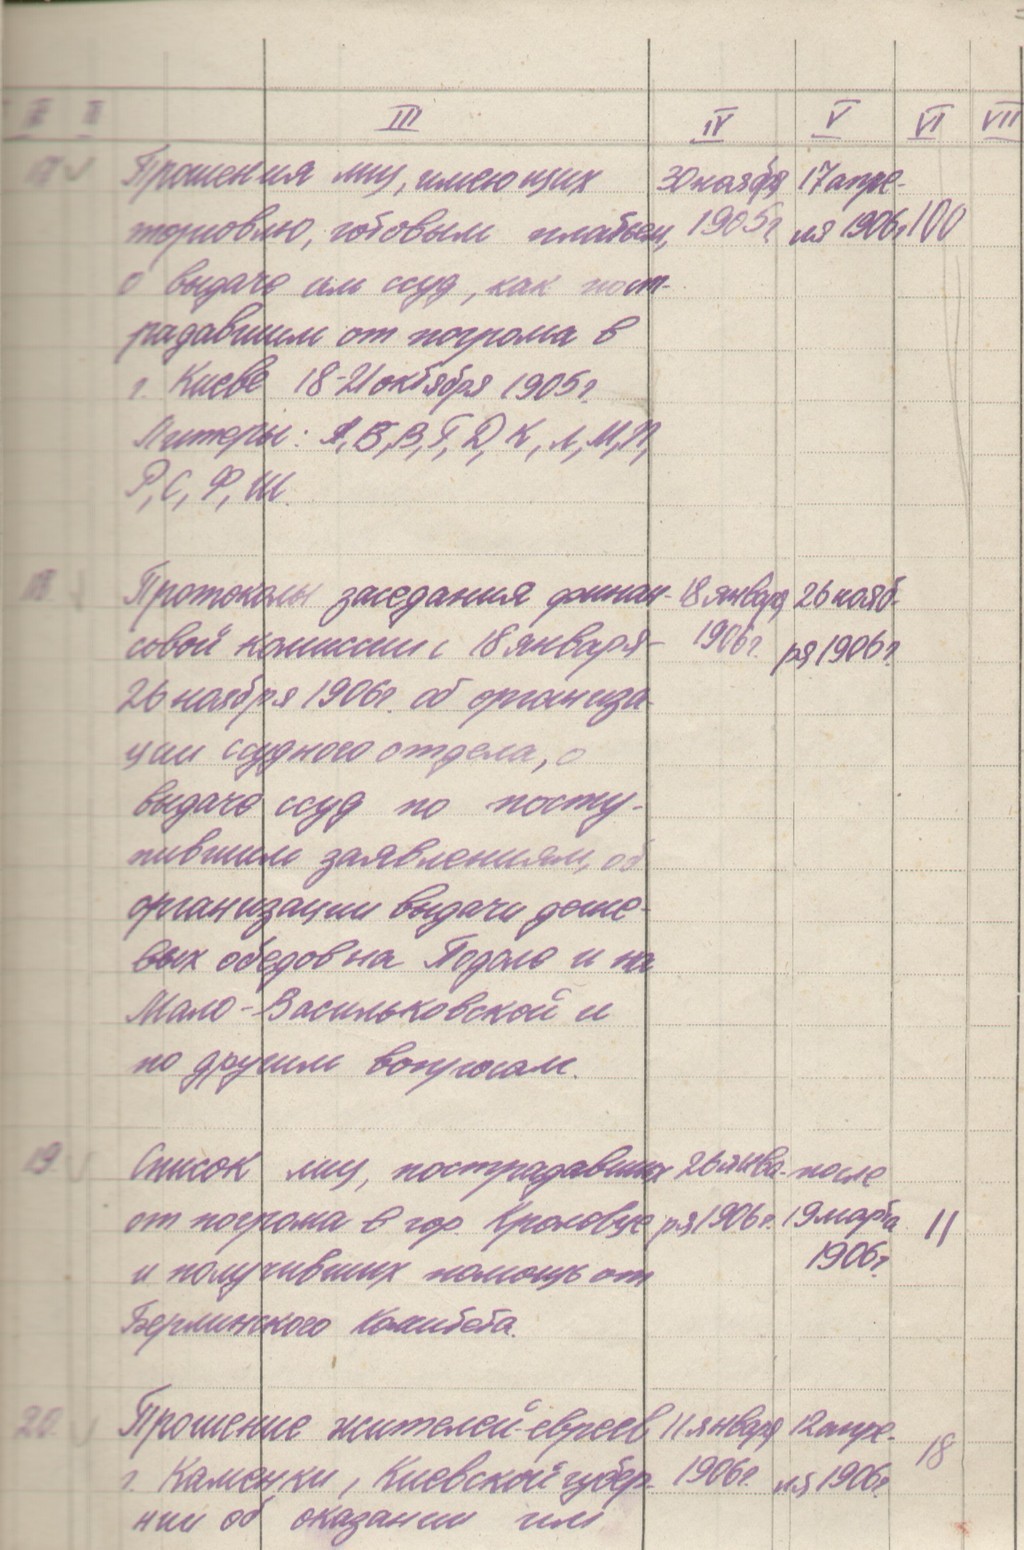 III IV V VI VII
17 Прошения лиц, имеющих 30 ноября 17 апре-
торговлю, готовым платьем, 1905 г. ля 1906 г. 100
о выдаче им ссуд, как пост-
радавшим от погрома в
г. Киеве 18-21 октября 1905 г.
Литеры: А, Б, В, Г, Д, К, Л, М, П,
Р, С, Ф, Ш.
18 Протоколы заседания финан- 18 января 26 нояб-
совой комиссии с 18 января- 1906 г. ря 1906 г.
26 ноября 1906 г. об организа-
ции ссудного отдела, о
выдаче ссуд по посту-
пившим заявлениям, об
организации выдачи деше-
вых обедов на Подоле и на
Мало-Васильковской и
по другим вопросам.
19 Список лиц, пострадавших 26 янва- после
от погрома в гор. Кролевце ря 1906 г. 19 марта 11
и получивших помощь от 1906 г.
Берлинского Комитета.
20 Прошение жителей-евреев 11 января 12 апре-
г. Каменки, Киевской губер- 1906 г. ля 1906 г. 18
нии об оказании им